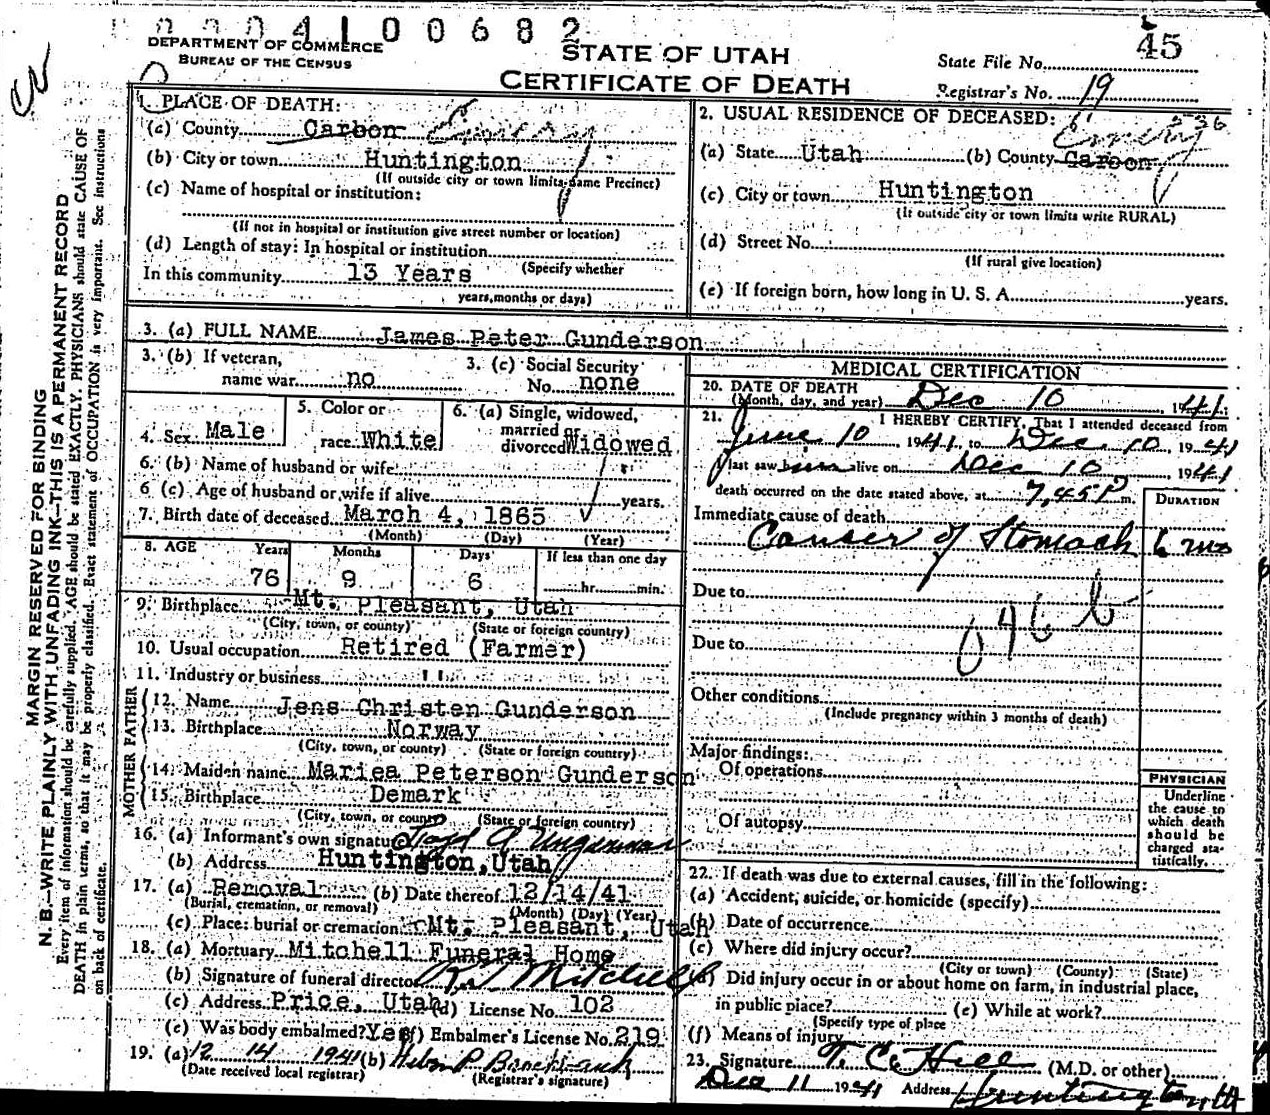 0004100682
DEPARTMENT OF COMMERCE
BUREAU OF THE CENSUS
STATE OF UTAH
CERTIFICATE OF DEATH
45
State File No.
Registrar's No. 19
MARGIN RESERVED FOR BINDING
N. B.—WRITE PLAINLY WITH UNFADING INK—THIS IS A PERMANENT RECORD
Every item of information should be carefully supplied. AGE should be stated EXACTLY. PHYSICIANS should state CAUSE OF
DEATH in plain terms, so that it may be properly classified. Exact statement of OCCUPATION is very important. See instructions
on back of certificate.
1. PLACE OF DEATH:
(a) County Carbon Emery
(b) City or town Huntington
(If outside city or town limits name Precinct)
(c) Name of hospital or institution:
(If not in hospital or institution give street number or location)
(d) Length of stay: In hospital or institution
(Specify whether
In this community 13 Years
years, months or days)
2. USUAL RESIDENCE OF DECEASED:
Emery
(a) State Utah (b) County Carbon
(c) City or town Huntington
(If outside city or town limits write RURAL)
(d) Street No.
(If rural give location)
(e) If foreign born, how long in U. S. A. years.
3. (a) FULL NAME James Peter Gunderson
3. (b) If veteran, name war no
3. (c) Social Security No. none
4. Sex Male
5. Color or race White
6. (a) Single, widowed, married or divorced Widowed
6. (b) Name of husband or wife
6 (c) Age of husband or wife if alive years.
7. Birth date of deceased March 4, 1865
(Month) (Day) (Year)
8. AGE Years Months Days If less than one day
76 9 6 hr. min.
9. Birthplace Mt. Pleasant, Utah
(City, town, or county) (State or foreign country)
10. Usual occupation Retired (Farmer)
11. Industry or business "
FATHER
12. Name Jens Christen Gunderson
13. Birthplace Norway
(City, town, or county) (State or foreign country)
MOTHER
14. Maiden name Mariea Peterson Gunderson
15. Birthplace Demark
(City, town, or county) (State or foreign country)
16. (a) Informant's own signature
(b) Address Huntington, Utah
17. (a) Removal (b) Date thereof 12/14/41
(Burial, cremation, or removal) (Month) (Day) (Year)
(c) Place: burial or cremation Mt. Pleasant, Utah
18. (a) Mortuary Mitchell Funeral Home
(b) Signature of funeral director Mitchell
(c) Address Price, Utah (d) License No. 102
(e) Was body embalmed? Yes (f) Embalmer's License No. 219
19. (a) 12 14 1941 (b)
(Date received local registrar) (Registrar's signature)
MEDICAL CERTIFICATION
20. DATE OF DEATH
(Month, day, and year) Dec 10 1941
21. I HEREBY CERTIFY, That I attended deceased from
June 10 1941, to Dec 10 1941
I last saw him alive on Dec 10 1941
death occurred on the date stated above, at 7,45 P m.
DURATION
Immediate cause of death
Cancer of Stomach 6 mo
Due to
046 b
Due to
Other conditions
(Include pregnancy within 3 months of death)
Major findings:
Of operations
Of autopsy
PHYSICIAN
Underline
the cause to
which death
should be
charged sta-
tistically.
22. If death was due to external causes, fill in the following:
(a) Accident, suicide, or homicide (specify)
(b) Date of occurrence
(c) Where did injury occur?
(City or town) (County) (State)
(d) Did injury occur in or about home on farm, in industrial place,
in public place? (e) While at work?
(Specify type of place
(f) Means of injury
23. Signature T. C. Hill (M.D. or other)
Dec 11 1941 Address Huntington, Ut